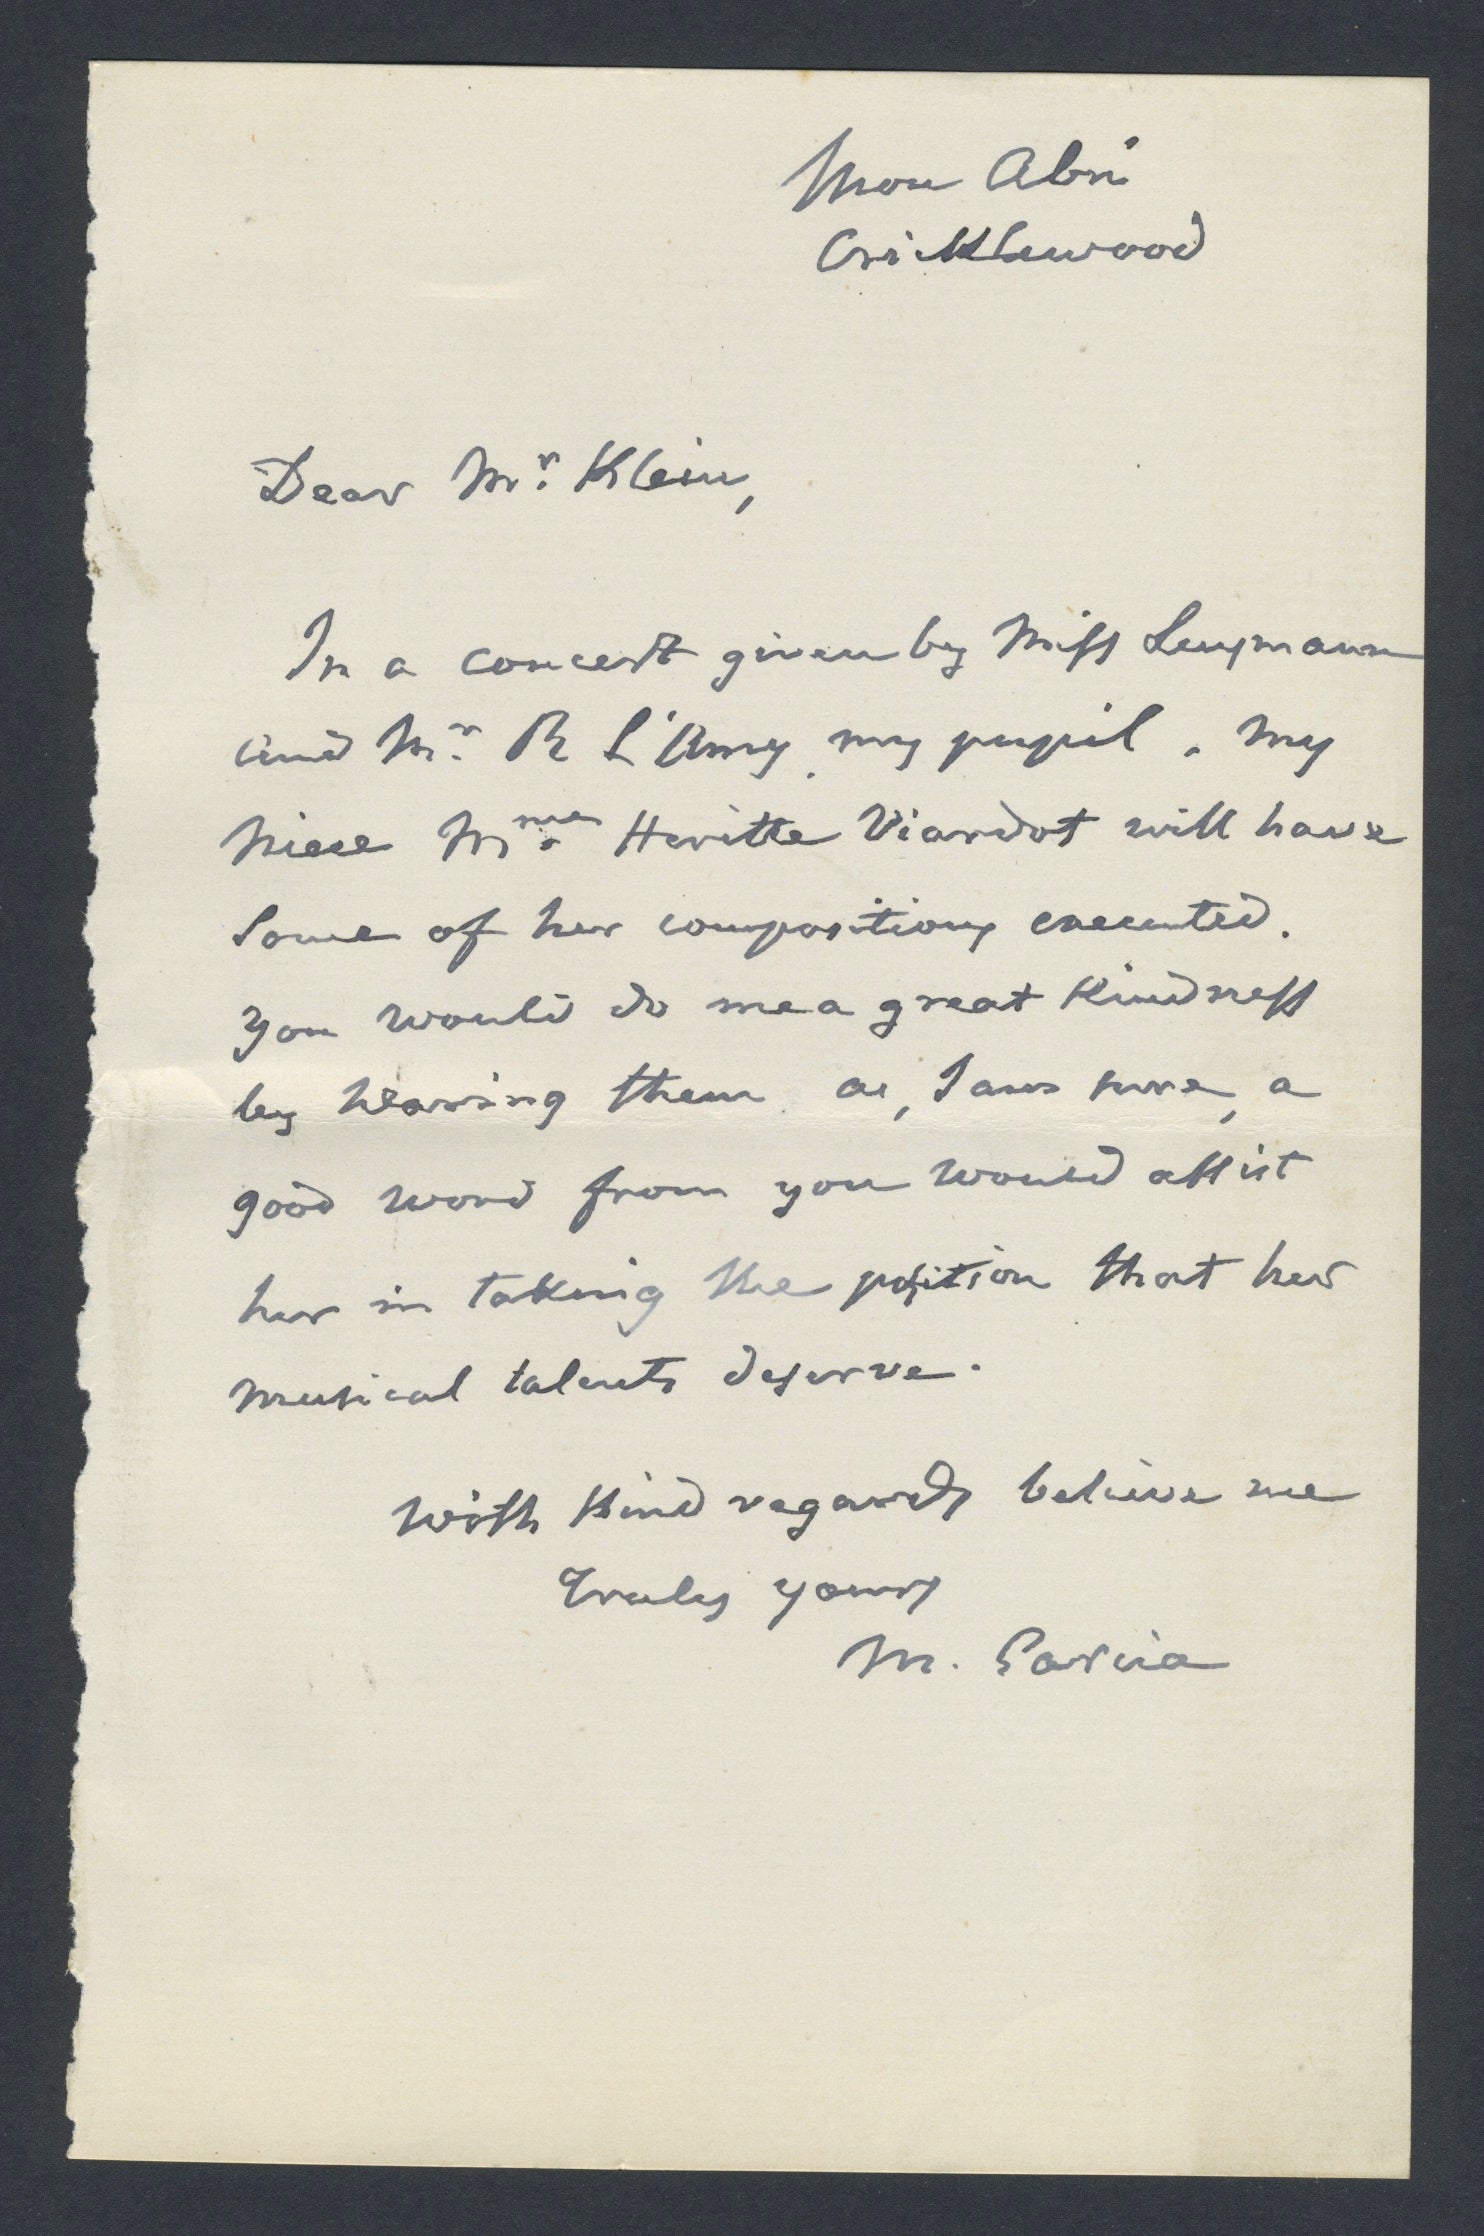 Mon Abri
Cricklewood
Dear Mr. Klein,
In a concert given by Miss
and Mr. R L'Amy, my pupil, my
niece Mme. Heritte Viardot will have
some of her compositions executed.
you would do me a great kindness
by hearing them as, I am sure, a
good word from you would assist
her in taking the position that her
musical talents deserve.
With kind regards believe me
Truly yours
M. Garcia